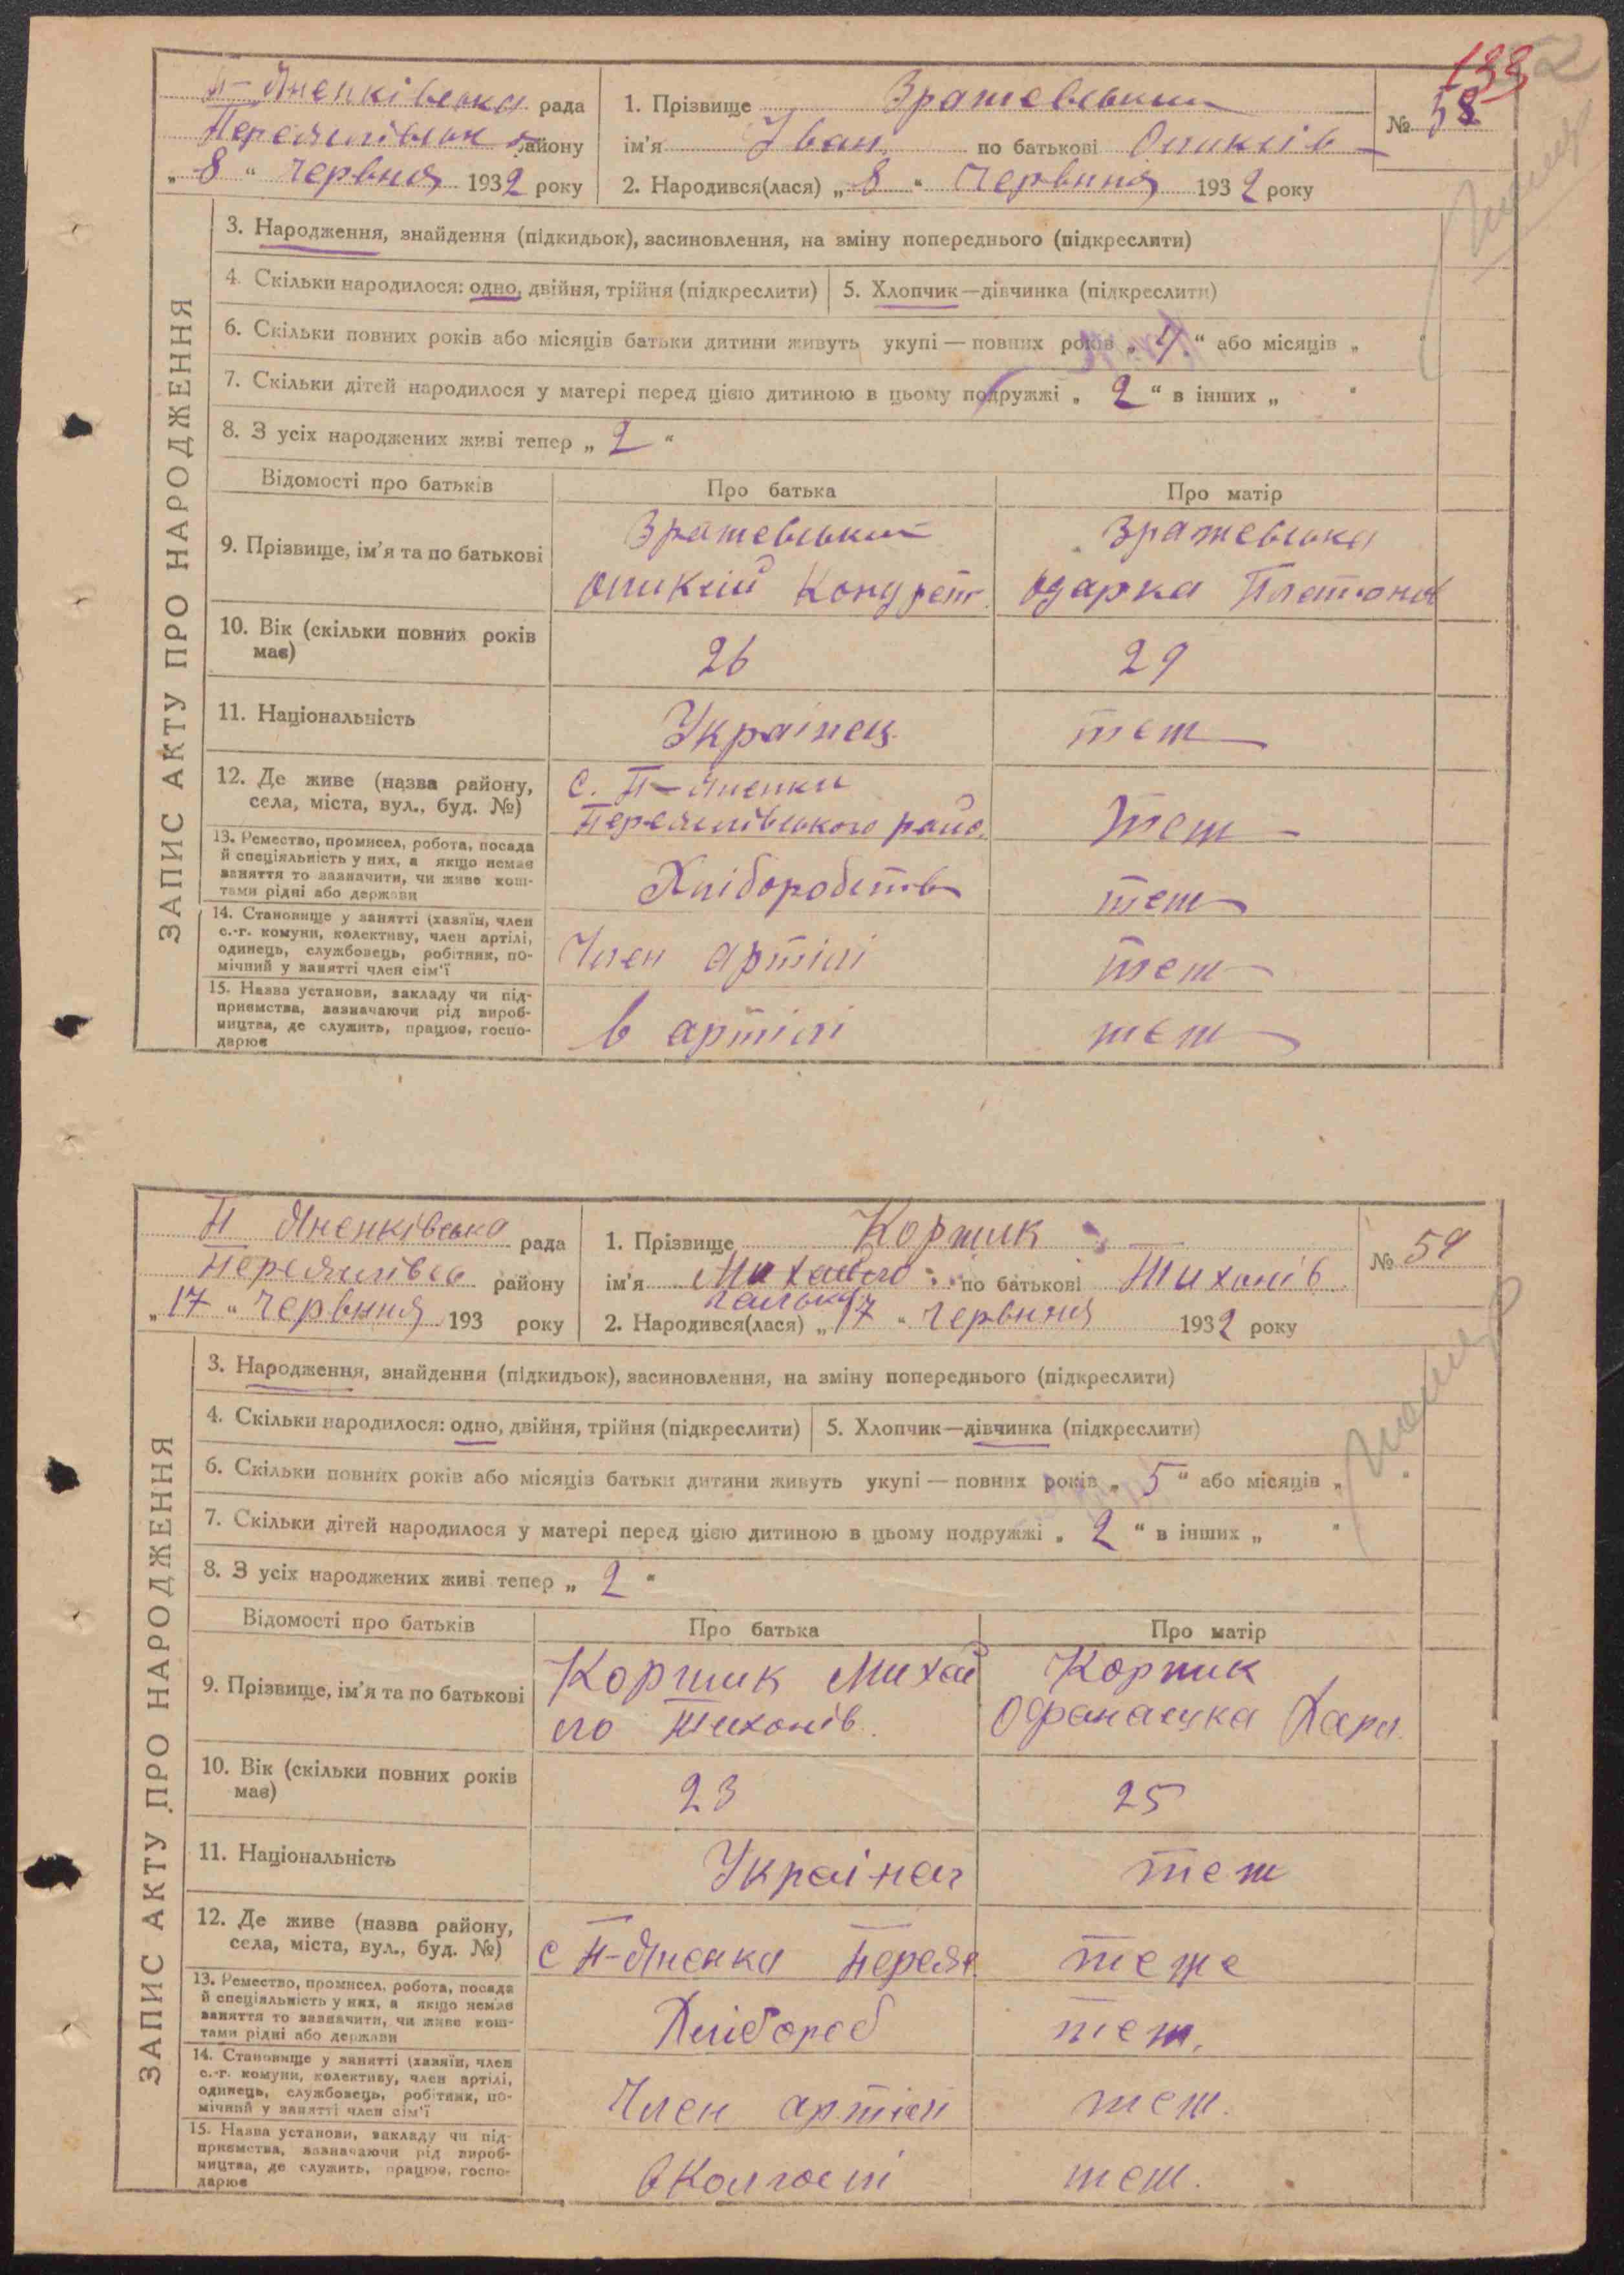 133
52
П-Яненківська рада
Переяслівськ району
„ 8 “ червня 1932 року
1. Прізвище Зражевський
ім'я Іван по батькові Оликсів
2. Народився(лася) „ 8 “ Червння 1932 року
№ 58
3. Народження, знайдення (підкидьок), засиновлення, на зміну попереднього (підкреслити)
4. Скільки народилося: одно, двійня, трійня (підкреслити)
5. Хлопчик—дівчинка (підкреслити)
6. Скільки повних років або місяців батьки дитини живуть укупі — повних років „ 4 “ або місяців „ “
7. Скільки дітей народилося у матері перед цією дитиною в цьому подружжі „ 2 “ в інших „ “
8. З усіх народжених живі тепер „ 2 “
ЗАПИС АКТУ ПРО НАРОДЖЕННЯ
Відомості про батьків
Про батька
Про матір
9. Прізвище, ім'я та по батькові
Зражевський
Оликсій Кондрат
Зражевська
Одарка Платона
10. Вік (скільки повних років
має)
26
29
11. Національність
Українец
теж
12. Де живе (назва району,
села, міста, вул., буд. №)
с. П-Яненки
Переяслівського райо.
теж
13. Ремество, промисел, робота, посада
й спеціяльність у них, а якщо немає
заняття то зазначити, чи живе кош-
тами рідні або держави
Хліборобств
теж
14. Становище у занятті (хазяїн, член
с.-г. комуни, колективу, член артілі,
одинець, службовець, робітник, по-
мічний у занятті член сім'ї
Член артілі
теж
15. Назва установи, закладу чи під-
приємства, зазначаючи рід вироб-
ництва, де служить, працює, госпо-
дарює
в артілі
теж
П Яненківська рада
Переяслівсь району
„ 17 “ червння 193 року
1. Прізвище Коржик
ім'я Михайло по батькові Тихонів
2. Народився(лася) „ 17 “ червння 1932 року
№ 59
3. Народження, знайдення (підкидьок), засиновлення, на зміну попереднього (підкреслити)
4. Скільки народилося: одно, двійня, трійня (підкреслити)
5. Хлопчик—дівчинка (підкреслити)
6. Скільки повних років або місяців батьки дитини живуть укупі — повних років „ 5 “ або місяців „ “
7. Скільки дітей народилося у матері перед цією дитиною в цьому подружжі „ 2 “ в інших „ “
8. З усіх народжених живі тепер „ 2 “
ЗАПИС АКТУ ПРО НАРОДЖЕННЯ
Відомості про батьків
Про батька
Про матір
9. Прізвище, ім'я та по батькові
Коржик Михай
ло Тихонів.
Коржик
Офанасука Харл.
10. Вік (скільки повних років
має)
23
25
11. Національність
Українец
теж
12. Де живе (назва району,
села, міста, вул., буд. №)
с П-Яненка Переяс
теже
13. Ремество, промисел, робота, посада
й спеціяльність у них, а якщо немає
заняття то зазначити, чи живе кош-
тами рідні або держави
Хлібороб
теж.
14. Становище у занятті (хазяїн, член
с.-г. комуни, колективу, член артілі,
одинець, службовець, робітник, по-
мічний у занятті член сім'ї
Член артілі
теж.
15. Назва установи, закладу чи під-
приємства, зазначаючи рід вироб-
ництва, де служить, працює, госпо-
дарює
в Колгоспі
теж.